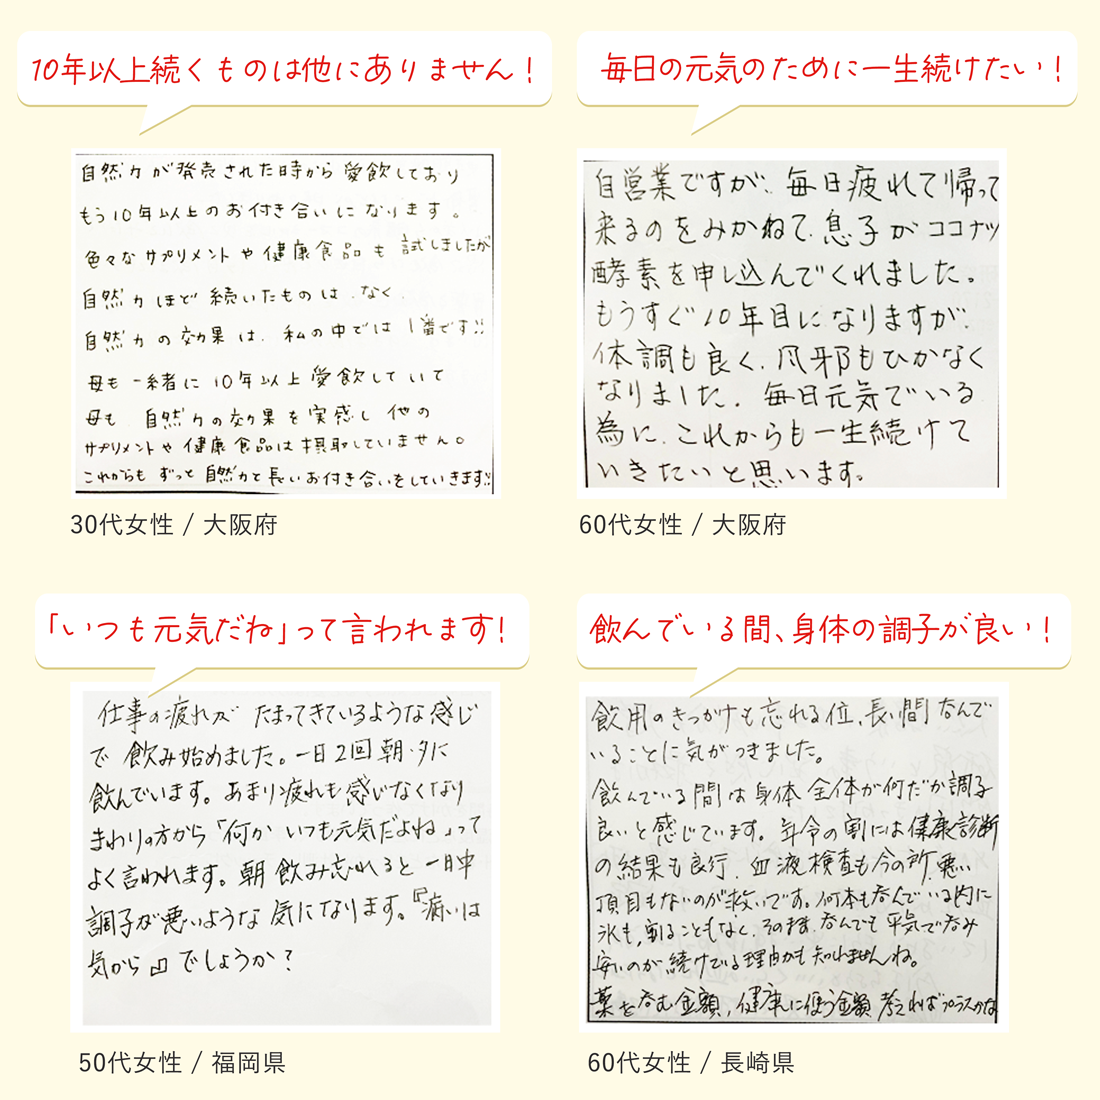 10年以上続くものは他にありません！
自然力が発売された時から愛飲しており
もう10年以上のお付き合いになります。
色々なサプリメントや健康食品も試しましたが
自然力ほど続いたものは、なく、
自然力の効果は、私の中では1番です!!
母も一緒に10年以上愛飲していて
母も、自然力の効果を実感し他の
サプリメントや健康食品は摂取していません。
これからもずっと自然力と長いお付き合いをしていきます!!
30代女性 / 大阪府
毎日の元気のために一生続けたい！
自営業ですが、毎日疲れて帰って
来るのをみかねて、息子がココナッツ
酵素を申し込んでくれました。
もうすぐ10年目になりますが、
体調も良く、風邪もひかなく
なりました。毎日元気でいる
為に、これからも一生続けて
いきたいと思います。
60代女性 / 大阪府
「いつも元気だね」って言われます！
仕事の疲れが たまってきているような感じ
で 飲み始めました。一日2回朝・夕に
飲んでいます。あまり疲れも感じなくなり
まわりの方から「何か いつも元気だよね」って
よく言われます。朝 飲み忘れると 一日中
調子が悪いような 気になります。『病いは
気から』でしょうか？
50代女性 / 福岡県
飲んでいる間、身体の調子が良い！
飲用のきっかけも忘れる位、長い間呑んで
いることに気がつきました。
飲んでいる間は身体全体が何だか調子
良いと感じています。年令の割には健康診断
の結果も良行、血液検査も今の所、悪い
項目もないのが救いです。何本も呑んでいる内に
氷も、割ることもなく、そのまま、呑んでも平気で呑み
安いのが続けている理由かも知れませんね。
薬を呑む金額、健康に使う金額、考えればプラスかな
60代女性 / 長崎県